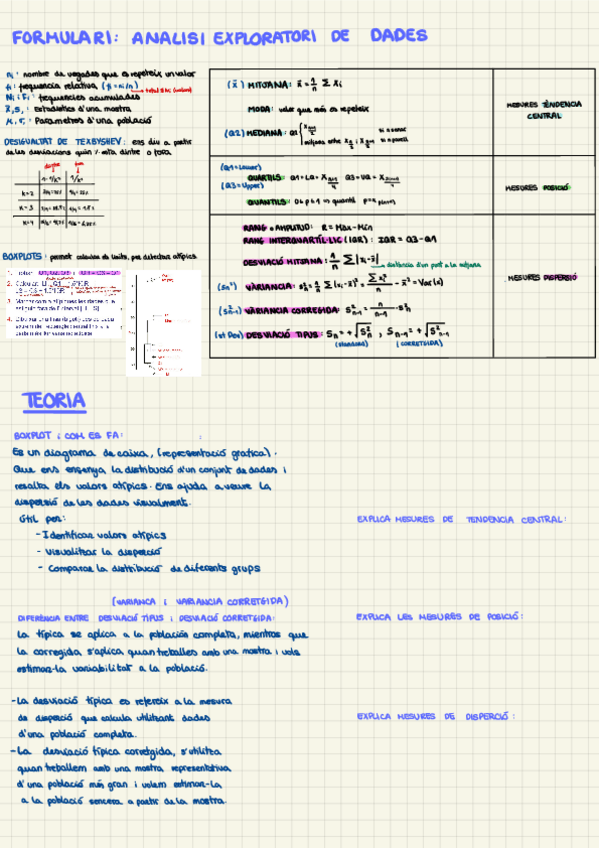 FORMULARI: ANALISI EXPLORATORI DE DADES
ni: nombre de vegades que es repeteix un valor
fi: frequencia relativa (fi = ni/n)
Ni i Fi: frequencies acumulades
x̄, s,: Estadístics d'una mostra
Paràmetres d'una població
DESIGUALTAT DE TEXBYSHEV: ens diu a partir
de les desviacions quin % esta dintre o fora
dintre fora
1 - 1/k² 1/k²
K=2
K=3
K=4
BOXPLOTS: permet calcular els limits, per detectar atípics
(x̄) MITJANA: x̄ = 1/n Σ xi
MODA: valor que més es repeteix
(Q2) MEDIANA: Q2
MESURES TÈNDENCIA
CENTRAL
(Q1=Lower)
(Q3=Upper)
QUARTILS: Q1=LQ= Q3=UQ=
QUANTILS
MESURES POSICIÓ
RANG o AMPLITUD: R = Max - Min
RANG INTERQUARTÍL·LIC (IQR): IQR = Q3 - Q1
DESVIACIÓ MITJANA: 1/n Σ |xi - x̄| distancia d'un punt a la mitjana
(Sn²) VARIANCIA: S²n = 1/n Σ (xi - x̄)² = Σxi²/n - x̄² = Var(x)
(S²n-1) VARIANCIA CORREGIDA: S²n-1 = n/n-1 · S²n
(st Dev) DESVIACIÓ TIPUS: Sn = +√S²n , Sn-1 = +√S²n-1
(standard) (CORRETGIDA)
MESURES DISPERSIÓ
TEORIA
BOXPLOT i COM ES FA: :
Es un diagrama de caixa, (representació grafica).
Que ens ensenya la distribució d'un conjunt de dades i
resalta els valors atípics. Ens ajuda a veure la
dispersió de les dades visualment.
útil per:
- Identificar valors atípics
- Visualitzar la disperció
- Comparar la distribució de diferents grups
(VARIANCA i VARIANCIA CORRETGIDA)
DIFERÈNCIA ENTRE DESVIACIÓ TIPUS i DESVIACIÓ CORRETGIDA:
La típica se aplica a la població completa, mientras que
la corregida s'aplica quan treballes amb una mostra i vols
estimar-la variabilitat a la població.
- La desviació típica es refereix a la mesura
de disperció que calcula utilitzant dades
d'una població completa.
- La desviació típica corretgida, s'utilitza
quan treballem amb una mostra representativa
d'una població més gran i volem estimar-la
a la població sencera a partir de la mostra.
EXPLICA MESURES DE TENDENCIA CENTRAL:
EXPLICA LES MESURES DE POSICIÓ:
EXPLICA MESURES DE DISPERCIÓ: